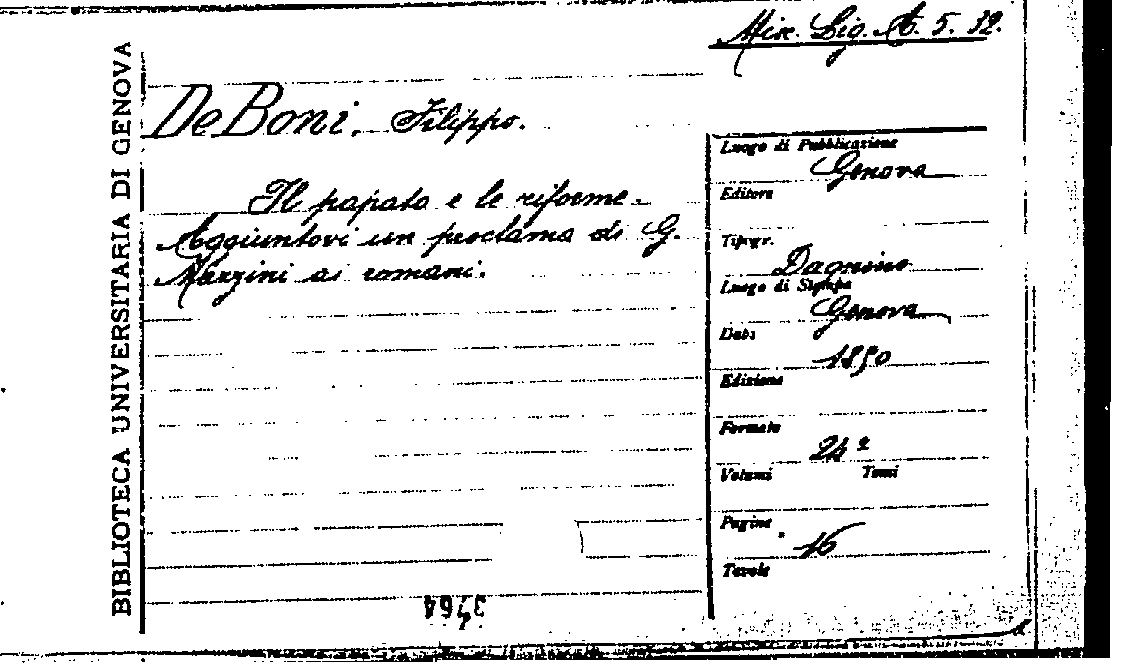 Misc. Lig. A. 5. 32.
BIBLIOTECA UNIVERSITARIA DI GENOVA
De Boni, Filippo.
Il papato e le riforme.
Aggiuntovi un proclama di G.
Mazzini ai romani.
Luogo di Pubblicazione
Genova
Editore
Tipogr.
Dagnino
Luogo di Stampa
Genova
Data
1850
Edizione
Formato
24º
Volumi Tomi
Pagine
16
Tavole
3764